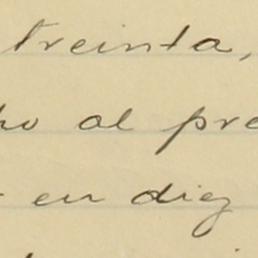 treinta,
al pre
en diez